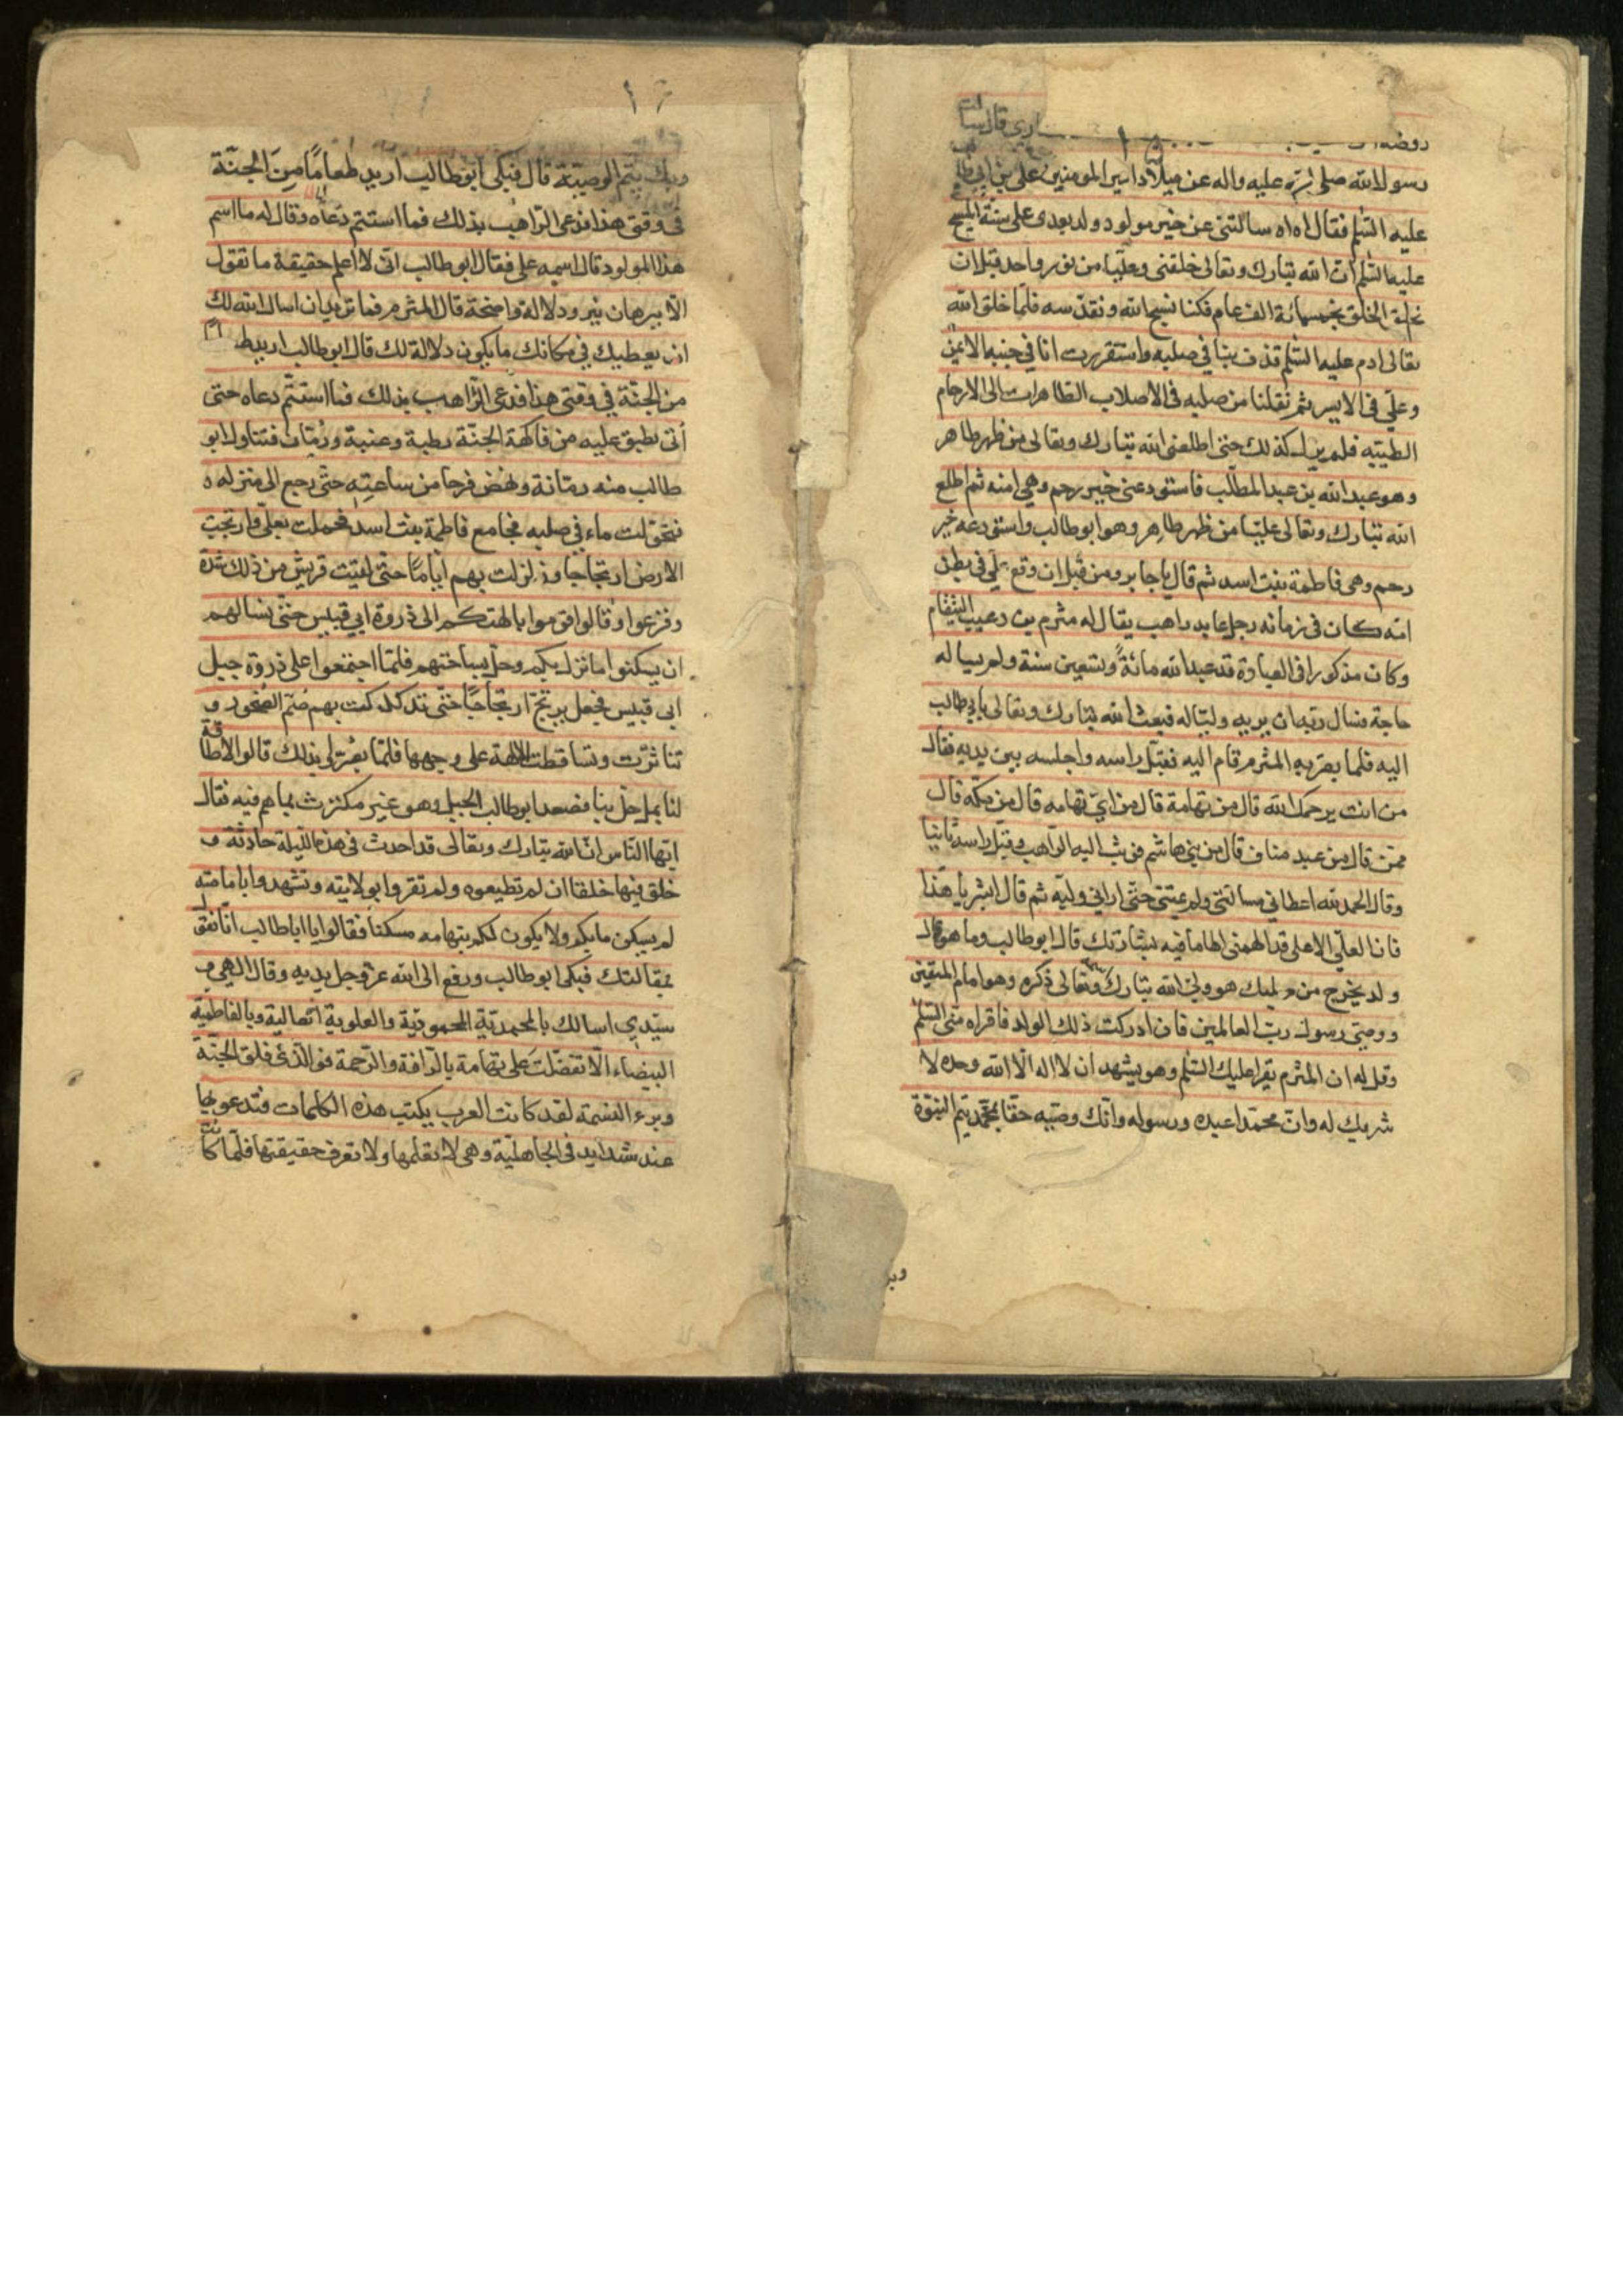 اري قال سالت
رسول الله صلى الله عليه واله عن ميلاد امير المومنين علي بن ابي طالب
عليه السلم فقال اه اه سالتني عن خير مولود ولد بعدي على سنة المسيح
عليه السلم ان الله تبارك وتعالى خلقني وعليا من نور واحد قبل ان
نخلق الخلق بخمسمائة الف عام فكنا نسبح الله ونقدسه فلما خلق الله
تعالى ادم عليه السلم قذف بنا في صلبه واستقررت انا في جنبه الايمن
وعلي في الايسر ثم نقلنا من صلبه في الاصلاب الطاهرات الى الارحام
الطيبه فلم يزل كذلك حتى اطلعني الله تبارك وتعالى من ظهر طاهر
وهو عبد الله بن عبد المطلب فاستودعني خير رحم وهي امنه ثم اطلع
الله تبارك وتعالى عليا من ظهر طاهر وهو ابو طالب واستودعه خير
رحم وهي فاطمة بنت اسد ثم قال يا جابر ومن قبل ان وقع علي في بطن
امه كان في زمانه رجل عابد راهب يقال له مثرم بن دعيب الشقام
وكان مذكورا في العبادة قد عبد الله مائة وتسعين سنة ولم يساله
حاجة فسال ربه ان يريه وليا له فبعث الله تبارك وتعالى بابي طالب
اليه فلما بصر به المثرم قام اليه فقبل راسه واجلسه بين يديه فقال
من انت يرحمك الله قال من تهامة قال من اي تهامه قال من مكه قال
ممن قال من عبد مناف قال من بني هاشم فوثب اليه الراهب وقبل راسه ثانيا
وقال الحمد لله اعطاني مسالتي ولم يمتني حتى اراني وليه ثم قال ابشر يا هذا
فان العلي الاعلى قد الهمني الهاما فيه بشارتك قال ابو طالب وما هو قال
ولد يخرج من صلبك هو ولي الله تبارك وتعالى ذكره وهو امام المتقين
ووصي رسول رب العالمين فان ادركت ذلك الولد فاقراه مني السلم
وقل له ان المثرم يقرا عليك السلم وهو يشهد ان لا اله الا الله وحده لا
شريك له وان محمدا عبده ورسوله وانك وصيه حقا بمحمد يتم النبوة
وبك يتم الوصية قال فبكى ابو طالب اريد طعاما من الجنة
في وقتي هذا فدعى الراهب بذلك فما استتم دعاه وقال له ما اسم
هذا المولود قال اسمه علي فقال ابو طالب اني لا اعلم حقيقة ما تقول
الا ببرهان نير ودلالة واضحة قال المثرم فما تريد ان اسال الله لك
ان يعطيك في مكانك ما يكون دلالة لك قال ابو طالب اريد
من الجنة في وقتي هذا فدعى الراهب بذلك فما استتم دعاه حتى
أتى بطبق عليه من فاكهة الجنة رطبة وعنبة ورمان فتناول ابو
طالب منه رمانة ونهض فرحا من ساعته حتى رجع الى منزله ه
فتحولت ماء في صلبه فجامع فاطمة بنت اسد فحملت بعلي وارتجت
الارض ارتجاجا وزلزلت بهم اياما حتى لقيت قريش من ذلك شدة
وفزعوا وقالوا قوموا بالهتكم الى ذروة ابي قبيس حتى نسالهم
ان يسكنوا ما نزل بكم وحل بساحتهم فلما اجتمعوا على ذروة جبل
ابي قبيس فجعل يرتج ارتجاجا حتى تدكدكت بهم صم الصخور و
تناثرت وتساقطت الالهة على وجهها فلما بصروا بذلك قالوا لا طاقة
لنا بما حل بنا فصعد ابو طالب الجبل وهو غير مكترث بما هم فيه فقال
ايها الناس ان الله تبارك وتعالى قد احدث في هذه الليلة حادثة و
خلق فيها خلقا ان لم تطيعوه ولم تقروا بولايته وتشهدوا بامامته
لم يسكن ما بكم ولا يكون لكم بتهامه مسكنا فقالوا يا ابا طالب انا نقول
بمقالتك فبكى ابو طالب ورفع الى الله عز وجل يديه وقال الهي و
سيدي اسالك بالمحمدية المحمودية والعلوية العالية وبالفاطمية
البيضاء الا تفضلت على تهامة بالرافة والرحمة فوالذي فلق الحبة
وبرء النسمة لقد كانت العرب يكتب هذه الكلمات فتدعو بها
عند شدايد في الجاهلية وهي لا تعلمها ولا تعرف حقيقتها فلما كانت